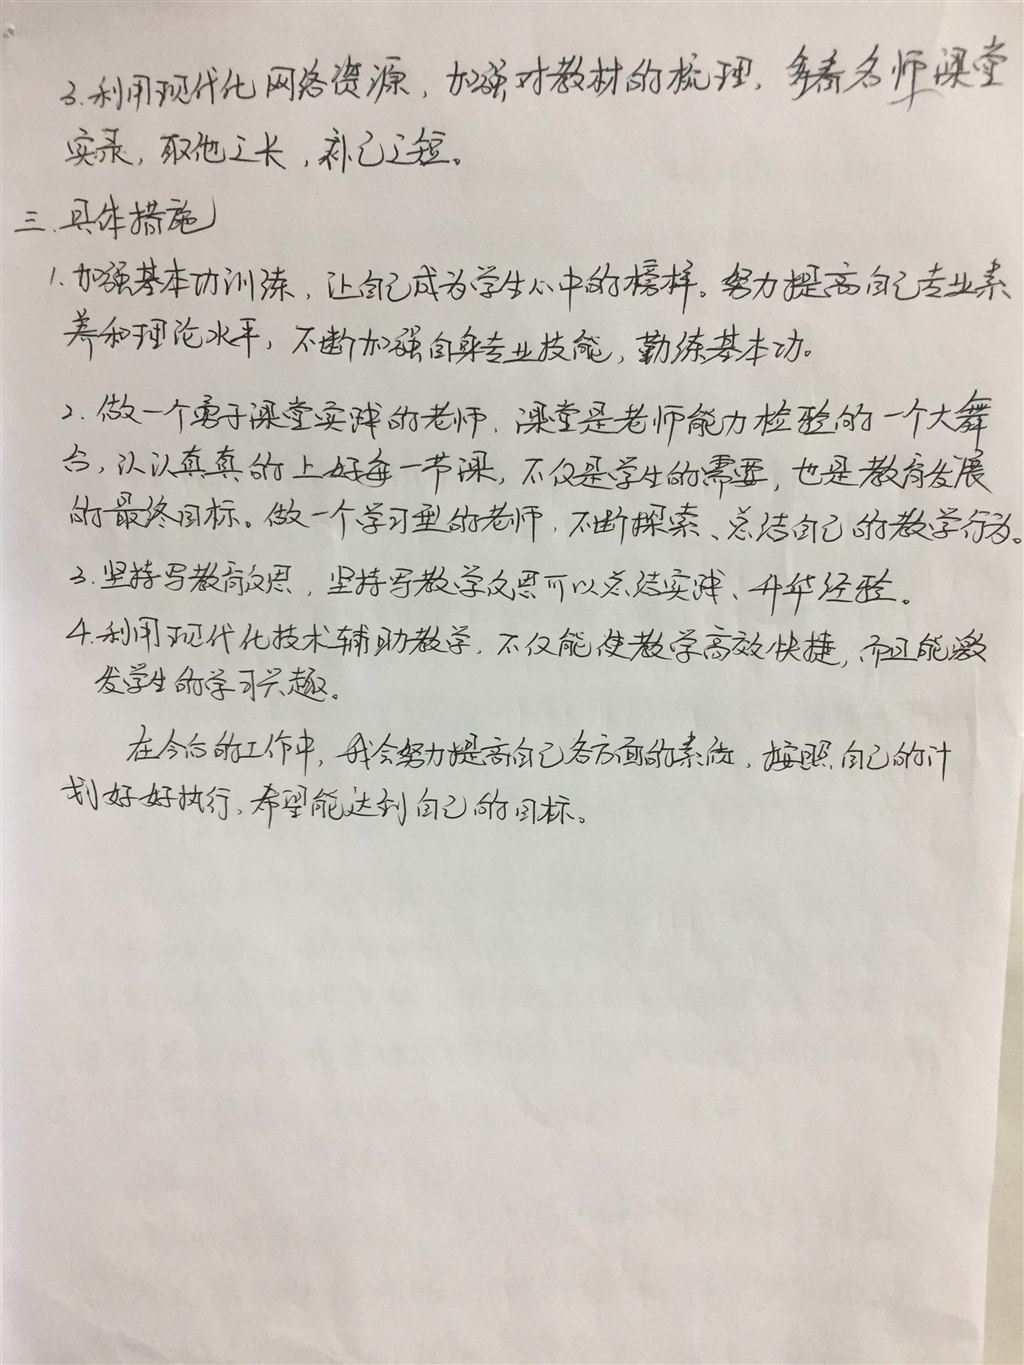 3.利用现代化网络资源，加强对教材的梳理，多看名师课堂
实录，取他之长，补己之短。
三、具体措施
1.加强基本功训练，让自己成为学生心中的榜样。努力提高自己专业素
养和理论水平，不断加强自身专业技能，勤练基本功。
2.做一个勇于课堂实践的老师，课堂是老师能力检验的一个大舞
台，认认真真的上好每一节课，不仅是学生的需要，也是教育发展
的最终目标。做一个学习型的老师，不断探索、总结自己的教学行为。
3.坚持写教育反思，坚持写教学反思可以总结实践、升华经验。
4.利用现代化技术辅助教学，不仅能使教学高效快捷，而且能激
发学生的学习兴趣。
在今后的工作中，我会努力提高自己各方面的素质，按照自己的计
划好好执行，希望能达到自己的目标。